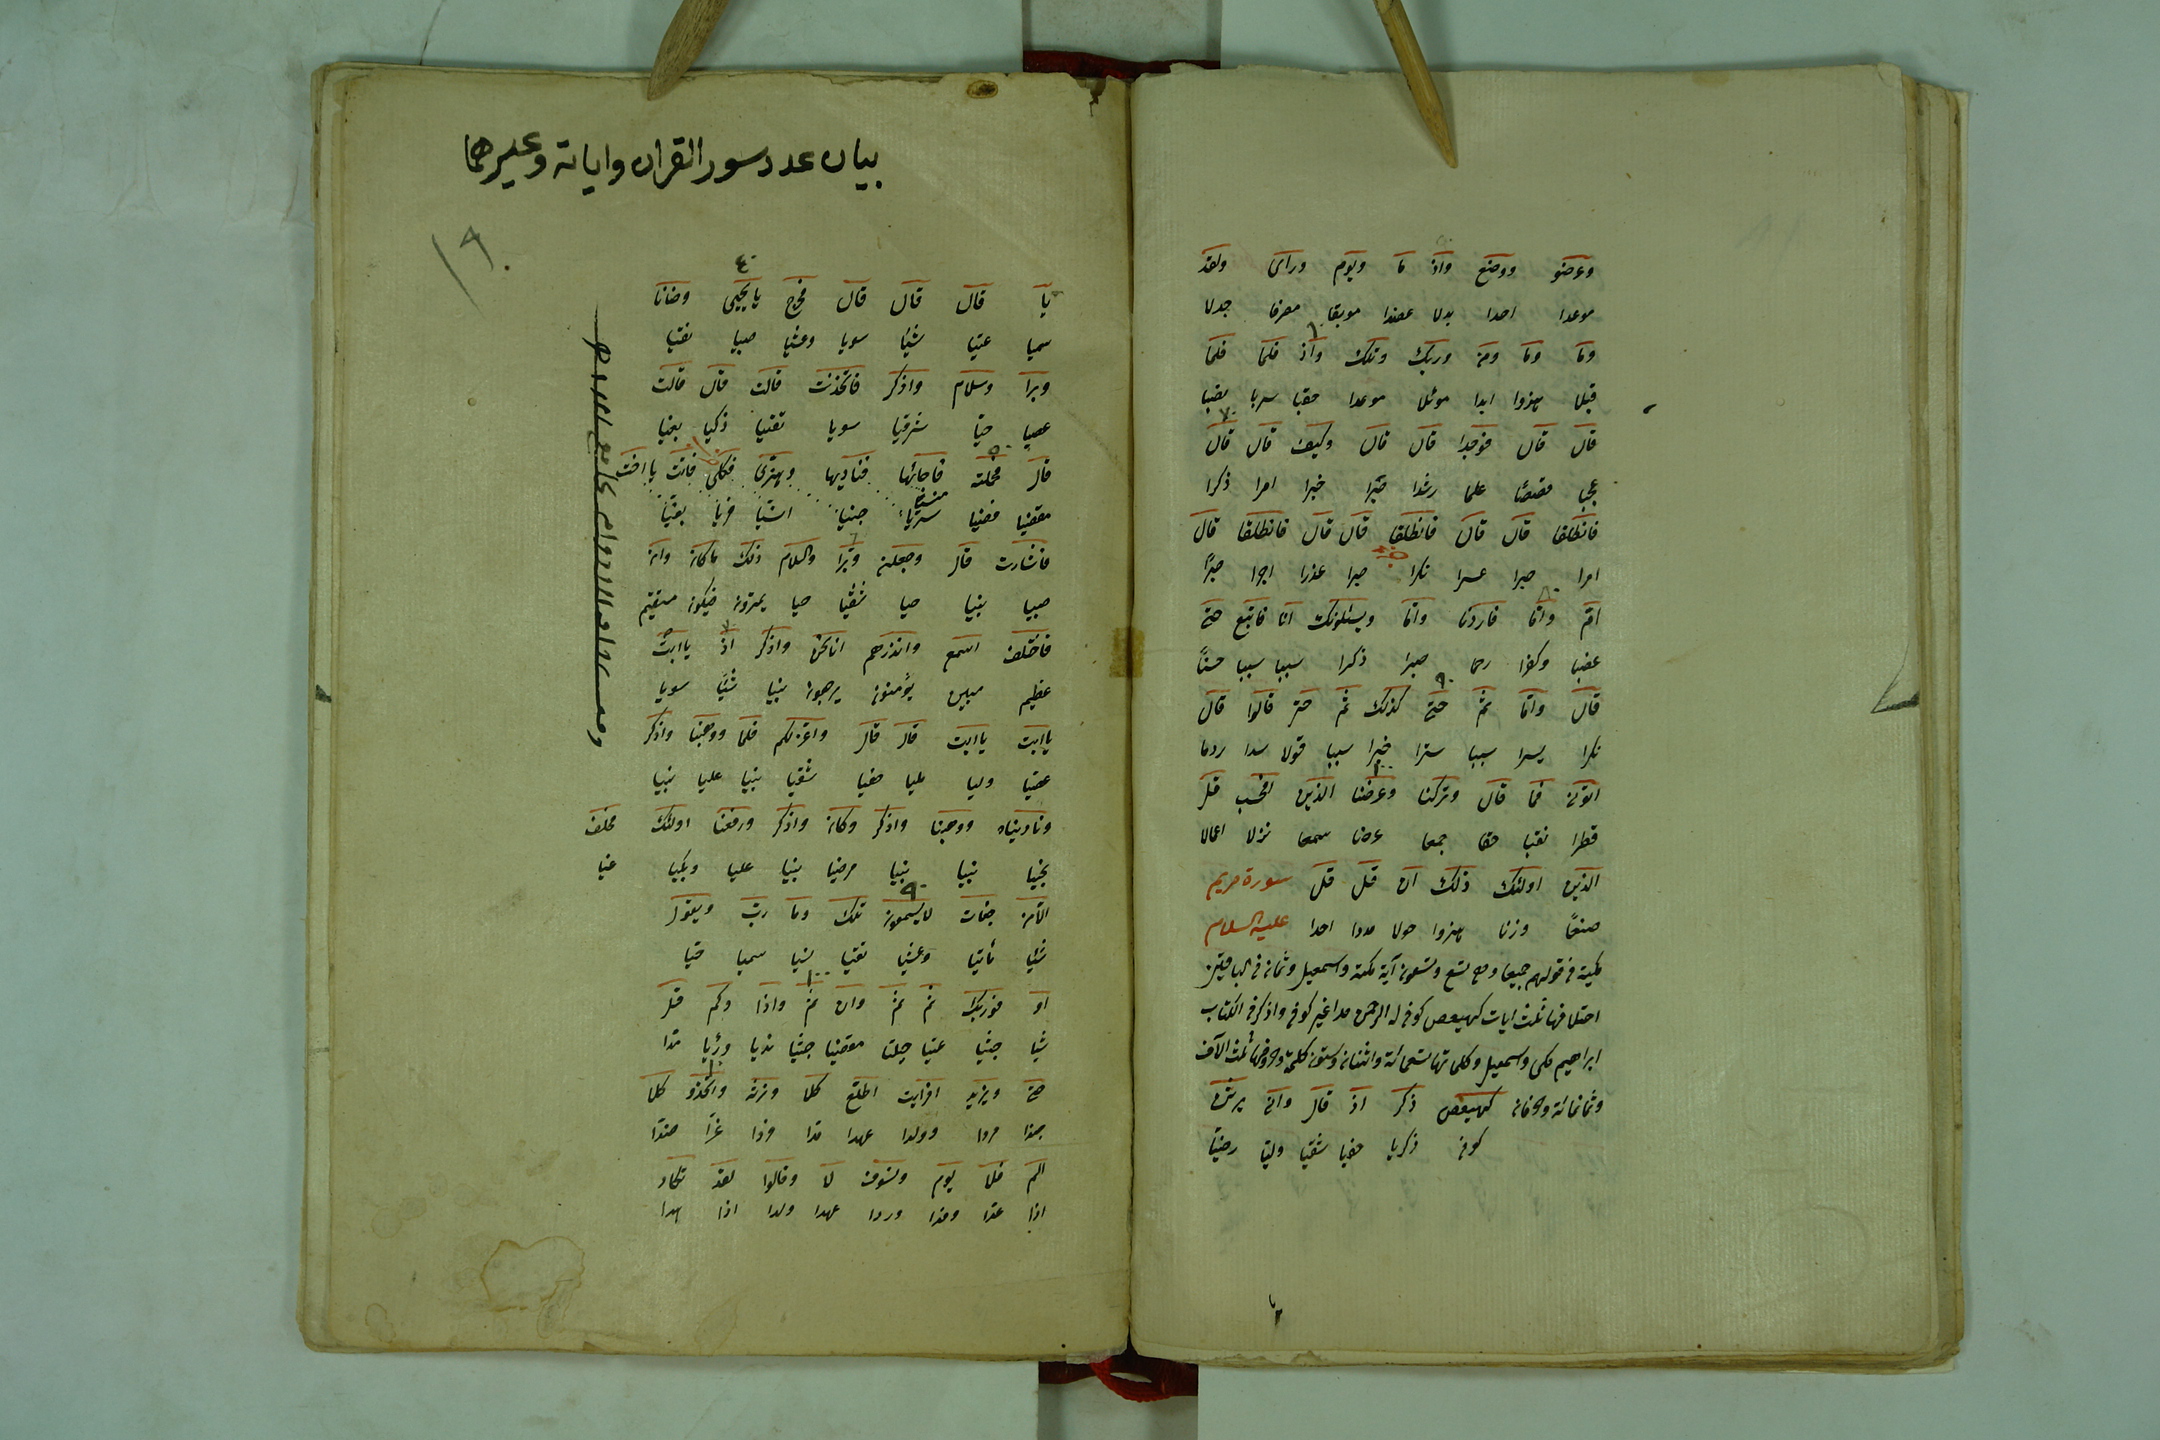 وعرضو ووضع واذ ما ويوم وراى ولقد
موعدا احدا بدلا عضدا موبقا مصرفا جدلا
وما وما ومن وربك وتلك واذ فلما فلما
قبلا هزوا ابدا موئلا موعدا حقبا سربا نصبا
قال قال فوجدا قال قال وكيف قال قال
عجبا قصصا علما رشدا صبرا خبرا امرا ذكرا
فانطلقا قال قال فانطلقا قال قال فانطلقا قال
امرا صبرا عسرا نكرا صبرا عذرا اجرا صبرا
اما واما فاردنا واما ويسئلونك انا فاتبع حتى
غصبا وكفرا رحما صبرا ذكرا سببا سببا حسنا
قال واما ثم حتى كذلك ثم حتى قالوا قال
نكرا يسرا سببا سترا خبرا سببا قولا سدا ردما
اتونى فما قال وتركنا وعرضنا الذين افحسب قل
قطرا نقبا حقا جمعا عرضا سمعا نزلا اعمالا
الذين اولئك ذلك ان قل قل سورة مريم
صنعا وزنا هزوا حولا مددا احدا عليه السلام
مكية فى قولهم جميعا وهى تسع وتسعون آية مكى واسمعيل وثمان فى الباقين
اختلافها ثلث ايات كهيعص كوفى له الرحمن مدا غير كوفى واذكر فى الكتاب
ابراهيم مكى واسمعيل وكلماتها تسعمائة واثنتان وستون كلمة وحروفها ثلث الآف
وثمانمائة وحرفان كهيعص ذكر اذ قال وانى يرثنى
كوفى زكريا خفيا شقيا وليا رضيا
بيان عدد سور القران واياته وغيرهما
١٩٠
٤٠
يا قال قال قال فخرج يا يحيى وحنانا
سميا عتيا شيئا سويا وعشيا صبيا تقيا
وبرا وسلام واذكر فاتخذت قالت قال قالت
عصيا حيا شرقيا سويا تقيا زكيا بغيا
قال فحملته فاجائها فناديها وهزى فكلى فاتت يا اخت
مقضيا قصيا منسيا سريا جنيا انسيا فريا بغيا
فاشارت قال وجعلنى وبرا والسلام ذلك ماكان وان
صبيا نبيا حيا شقيا حيا يمترون فيكون مستقيم
فاختلف اسمع وانذرهم انا نحن واذكر اذ يا ابت
عظيم مبين يؤمنون يرجعون نبيا شيئا سويا
يا ابت يا ابت قال قال واعتزلكم فلما ووهبنا واذكر
عصيا وليا مليا حفيا شقيا نبيا عليا نبيا
وناديناه ووهبنا واذكر وكان واذكر ورفعنا اولئك فخلف
نجيا نبيا نبيا مرضيا نبيا عليا وبكيا غيا
الا من جنات لا يسمعون تلك وما رب ويقول
شيئا مأتيا وعشيا تقيا نسيا سميا حيا
او فوربك ثم ثم وان ثم واذا وكم قل
شيئا جثيا عتيا صليا مقضيا جثيا نديا ورئيا مدا
حتى ويزيد افرايت اطلع كلا ونرثه واتخذو كلا
جندا مردا وولدا عهدا مدا فردا عزا ضدا
الم فلا يوم ونسوق لا وقالوا لقد تكاد
ازا عدا وفدا وردا عهدا ولدا ادا هدا